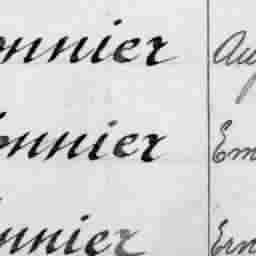 onnier Aug
onnier Em
nnier Ern